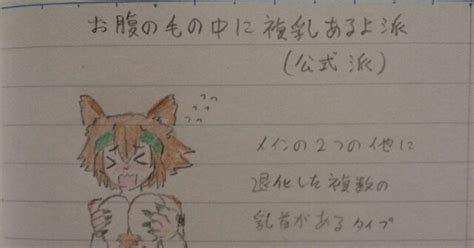 お腹の毛の中に複乳あるよ派
(公式派)
メインの2つの他に
退化した複数の
乳首があるタイプ